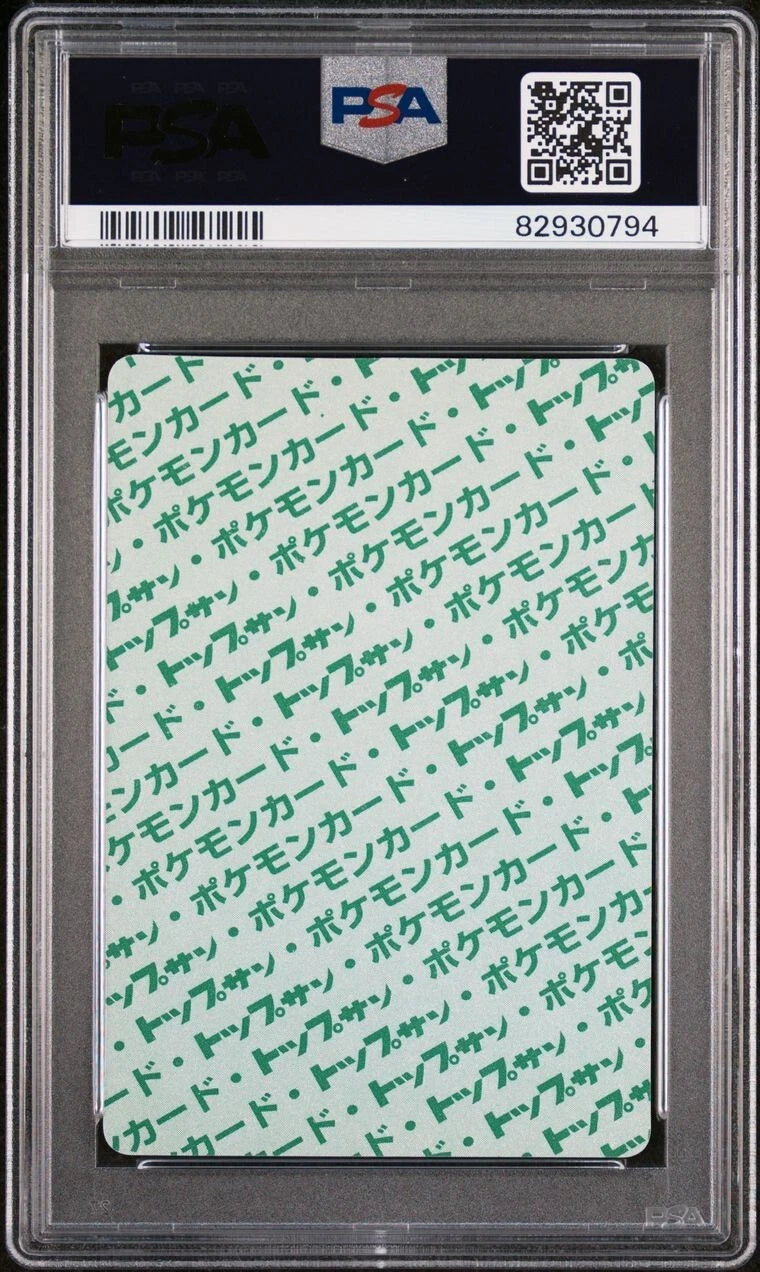 PSA
PSA
82930794
カード・
モンカード・ト
ポケモンカード・ト
ン・ポケモンカード・トッ
プサン・ポケモンカード・トップ
トップサン・ポケモンカード・トップサ
・トップサン・ポケモンカード・トッ
ド・トップサン・ポケモンカード・ト
ード・トップサン・ポケモンカード
ンカード・トップサン・ポケモンカ
モンカード・トップサン・ポケモ
ケモンカード・トップサン・ポ
・ポケモンカード・トップサン
サン・ポケモンカード・トップ
ップサン・ポケモンカード・ト
・トップサン・ポケモンカード
ード・トップサン・ポケモンカ
カード・トップサン・ポケモ
カード・トップサン・ポケ
ード・トップサン・
ド・トップサ
・トッ
PSA